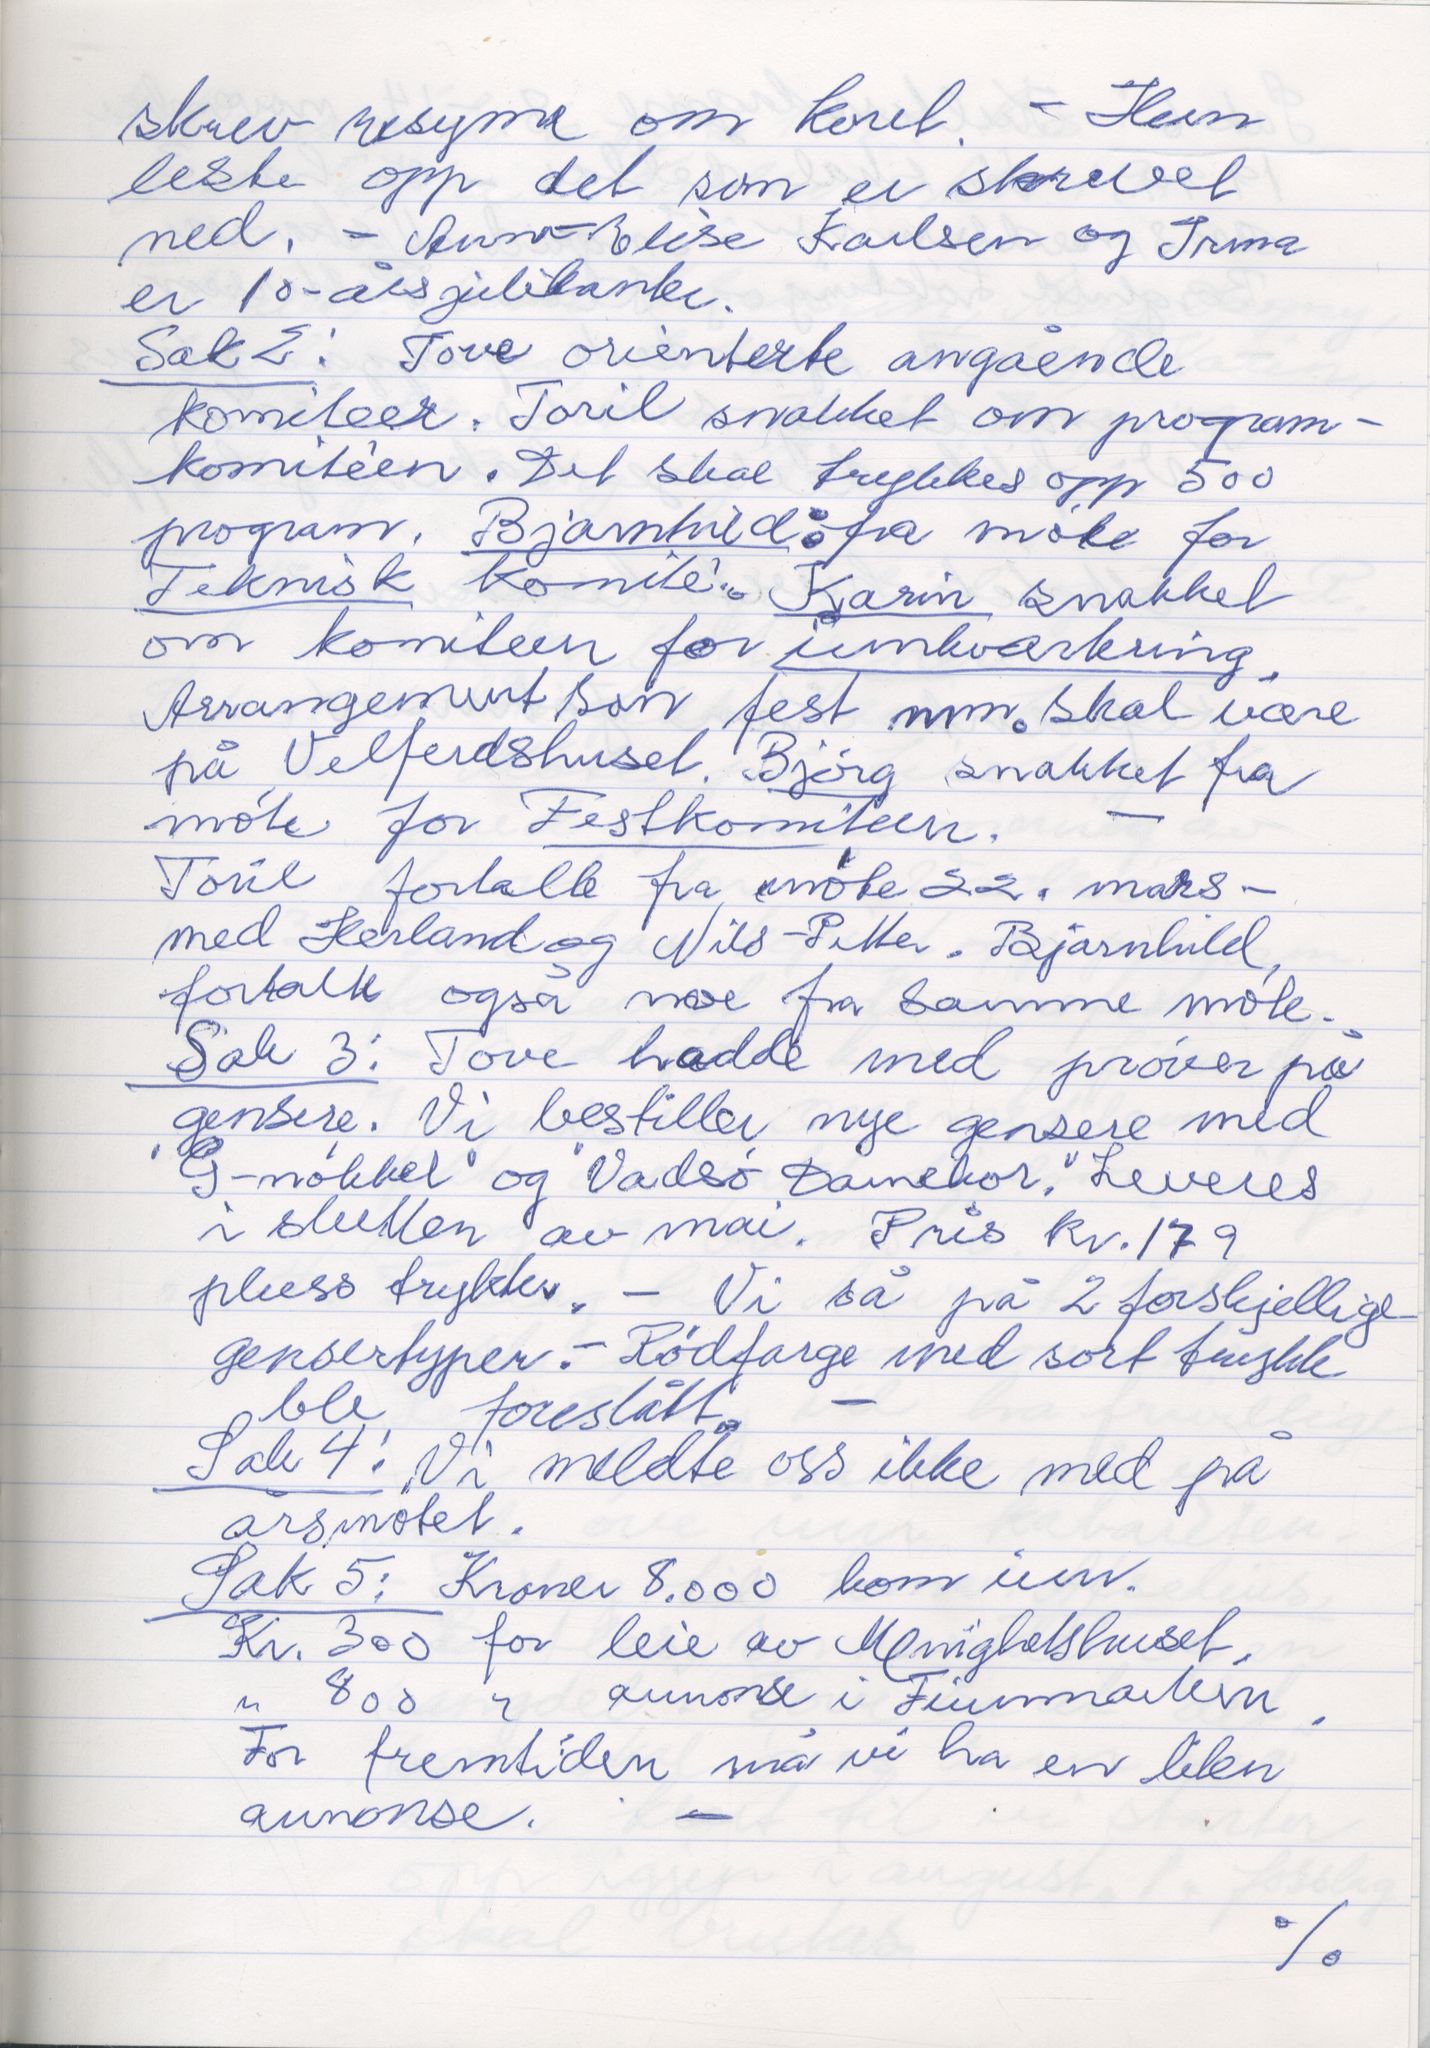 skrev resyme om koret. - Hun
leste opp det som er skrevet
ned. - Ann-Elise Karlsen og Irma
er 10-årsjubilanter.
Sak 2: Tove orienterte angående
komiteer. Toril snakket om program-
komitéen. Det skal trykkes opp 500
program. Bjarnhild: fra møte for
Teknisk komité. Karin snakket
om komiteen for innkvartering.
Arrangement som fest mm. skal være
på Velferdshuset. Bjørg snakket fra
møte for Festkomiteen. -
Toril fortalte fra møte 22. mars -
med Herland og Nils-Petter. Bjarnhild
fortalte også noe fra samme møte.
Sak 3: Tove hadde med prøver på
gensere. Vi bestiller nye gensere med
"G-nøkkel" og "Vadsø Damekor." Leveres
i slutten av mai. Pris kr. 179
pluss trykk. - Vi så på 2 forskjellige
gensertyper. - Rødfarge med sort trykk
ble foreslått. -
Sak 4: Vi meldte oss ikke med på
årsmøtet.
Sak 5: Kroner 8.000 kom inn.
Kr. 300 for leie av Menighetshuset.
" 800 " annonse i Finnmarken.
For fremtiden må vi ha en liten
annonse. -
%